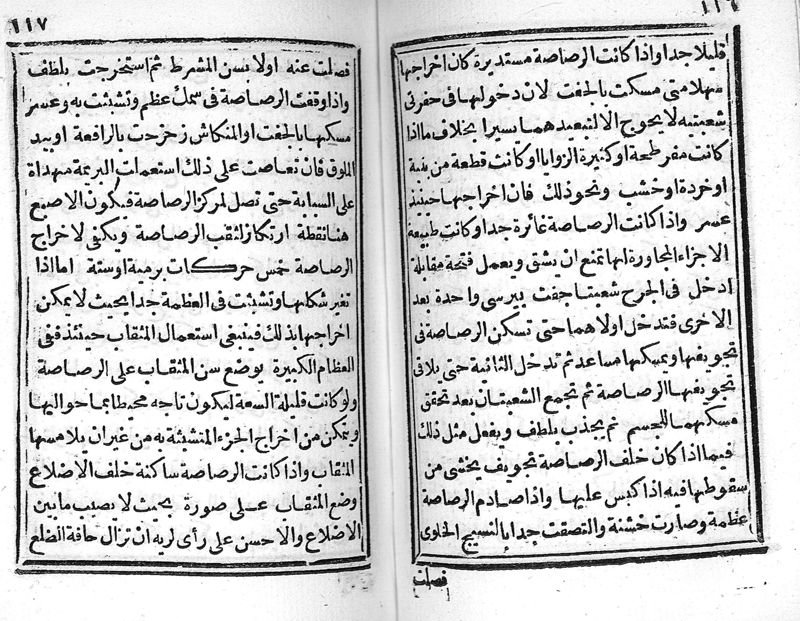 ١١٦
قليلا جدا واذا كانت الرصاصة مستديرة كان اخراجها
سهلا متى مسكت بالجفت لان دخولها فى حفرتى
شعبتيه لا يحوج الا لتبعيدهما يسيرا بخلاف ما اذا
كانت مفرطحة او كثيرة الزوايا او كانت قطعة من بنية
او خردة او خشب ونحو ذلك فان اخراجها حينئذ
عسر واذا كانت الرصاصة غائرة جدا وكانت طبيعة
الاجزاء المجاورة لها تمنع ان يشق ويعمل فتحة مقابلة
ادخل فى الجرح شعبتا جفت بيرسى واحدة بعد
الاخرى فتدخل اولاهما حتى تسكن الرصاصة فى
تجويفها ويمسكها مساعد ثم تدخل الثانية حتى يلاقى
تجويفها الرصاصة ثم تجمع الشعبتان بعد تحقق
مسكهما الجسم ثم يجذب بلطف ويفعل مثل ذلك
فيما اذا كان خلف الرصاصة تجويف يخشى من
سقوطها فيه اذا كبس عليها واذا صادم الرصاصة
عظمة وصارت خشنة والتصقت جدا بالنسيج الخلوى
فصلت
١١٧
فصلت عنه اولا بسن المشرط ثم استخرجت بلطف
واذا وقفت الرصاصة فى سمك عظم وتشبثت به وعسر
مسكها بالجفت او المنكاش زحزحت بالرافعة او بيد
الملوق فان تعاصت على ذلك استعملت البريمة مهداة
على السبابة حتى تصل لمركز الرصاصة فيكون الاصبع
هنا نقطة ارتكاز لثقب الرصاصة ويكفى لاخراج
الرصاصة خمس حركات برمية او ستة اما اذا
تغير شكلها وتشبثت فى العظمة جدا بحيث لا يمكن
اخراجها بذلك فينبغى استعمال المثقاب حينئذ ففى
العظام الكبيرة يوضع سن المثقاب على الرصاصة
ولو كانت قليلة السعة ليكون تاجه محيطا بما حواليها
ويتمكن من اخراج الجزء المتشبثة به من غير ان يلامسها
المثقاب واذا كانت الرصاصة ساكنة خلف الاضلاع
وضع المثقاب على صورة بحيث لا يصيب ما بين
الاضلاع والاحسن على رأى لريه ان تزال حافة الضلع